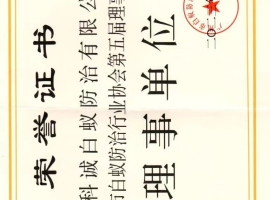 荣誉证书
科诚白蚁防治有限公
市白蚁防治行业协会第五届理事
理事单位